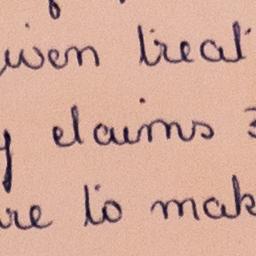 iven treat
y claims
re to mak